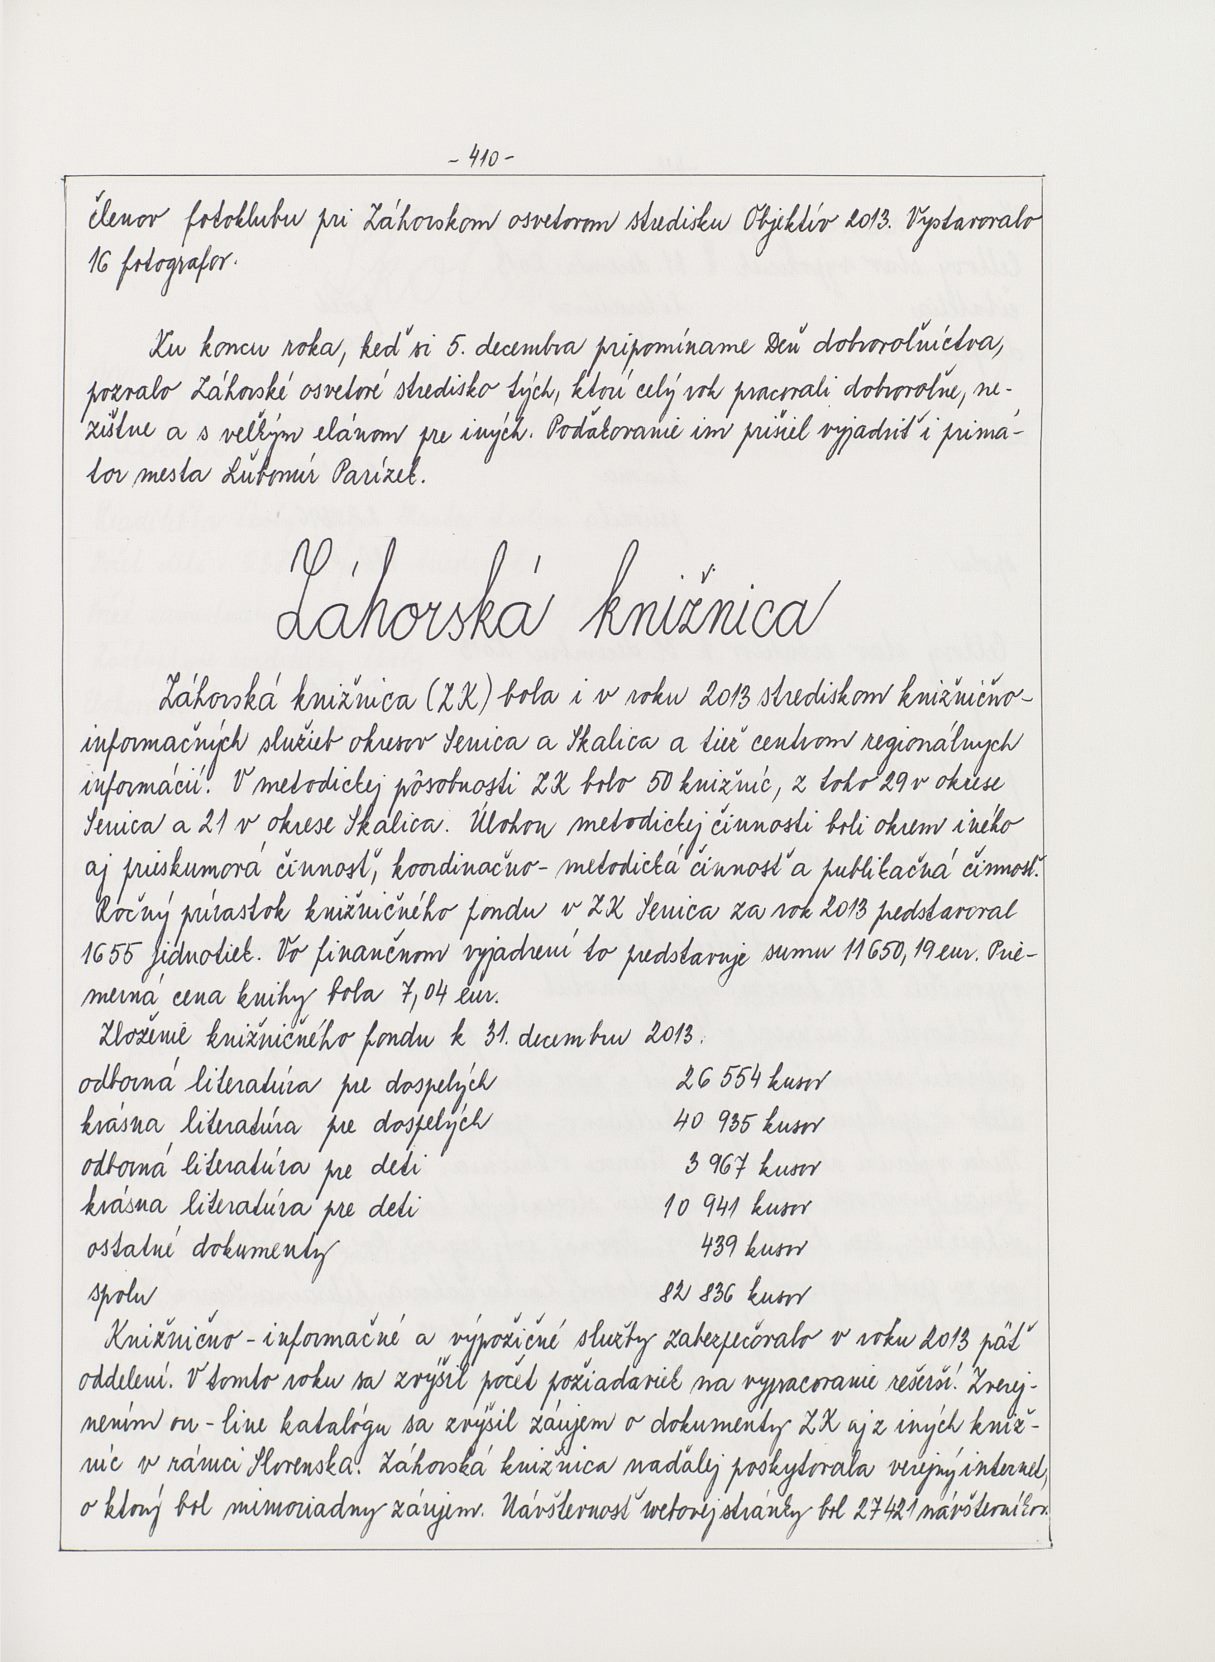 - 410 -
členov fotoklubu pri Záhorskom osvetovom stredisku Objektív 2013. Vystavovalo
16 fotografov.
Ku koncu roka, keď si 5. decembra pripomíname Deň dobrovoľníctva,
pozvalo Záhorské osvetové stredisko tých, ktorí celý rok pracovali dobrovoľne, ne-
zištne a s veľkým elánom pre iných. Poďakovanie im prišiel vyjadriť i primá-
tor mesta Ľubomír Parízek.
Záhorská knižnica
Záhorská knižnica (ZK) bola i v roku 2013 strediskom knižnično-
informačných služieb okresov Senica a Skalica a tiež centrom regionálnych
informácií. V metodickej pôsobnosti ZK bolo 50 knižníc, z toho 29 v okrese
Senica a 21 v okrese Skalica. Úlohou metodickej činnosti boli okrem iného
aj prieskumová činnosť, koordinačno-metodická činnosť a publikačná činnosť.
Ročný prírastok knižničného fondu v ZK Senica za rok 2013 predstavoval
1655 jednotiek. Vo finančnom vyjadrení to predstavuje sumu 11 650,19 eur. Prie-
merná cena knihy bola 7,04 eur.
Zloženie knižničného fondu k 31. decembru 2013.
odborná literatúra pre dospelých 26 554 kusov
krásna literatúra pre dospelých 40 935 kusov
odborná literatúra pre deti 3 967 kusov
krásna literatúra pre deti 10 941 kusov
ostatné dokumenty 439 kusov
spolu 82 836 kusov
Knižnično-informačné a výpožičné služby zabezpečovalo v roku 2013 päť
oddelení. V tomto roku sa zvýšil počet požiadaviek na vypracovanie rešerší. Zverej-
nením on-line katalógu sa zvýšil záujem o dokumenty ZK aj z iných kniž-
níc v rámci Slovenska. Záhorská knižnica naďalej poskytovala verejný internet,
o ktorý bol mimoriadny záujem. Návštevnosť webovej stránky bol 27421 návštevníkov.